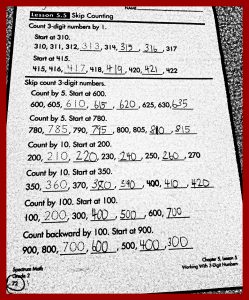 NAME
Lesson 5.5 Skip Counting
Count 3-digit numbers by 1.
Start at 310.
310, 311, 312, 313, 314, 315, 316, 317
Start at 415.
415, 416, 417, 418, 419, 420, 421, 422
Skip count 3-digit numbers.
Count by 5. Start at 600.
600, 605, 610, 615, 620, 625, 630, 635
Count by 5. Start at 780.
780, 785, 790, 795, 800, 805, 810, 815
Count by 10. Start at 200.
200, 210, 220, 230, 240, 250, 260, 270
Count by 10. Start at 350.
350, 360, 370, 380, 390, 400, 410, 420
Count by 100. Start at 100.
100, 200, 300, 400, 500, 600, 700
Count backward by 100. Start at 900.
900, 800, 700, 600, 500, 400, 300
Spectrum Math
Grade 2
72
Chapter 5, Lesson 5
Working With 3-Digit Numbers